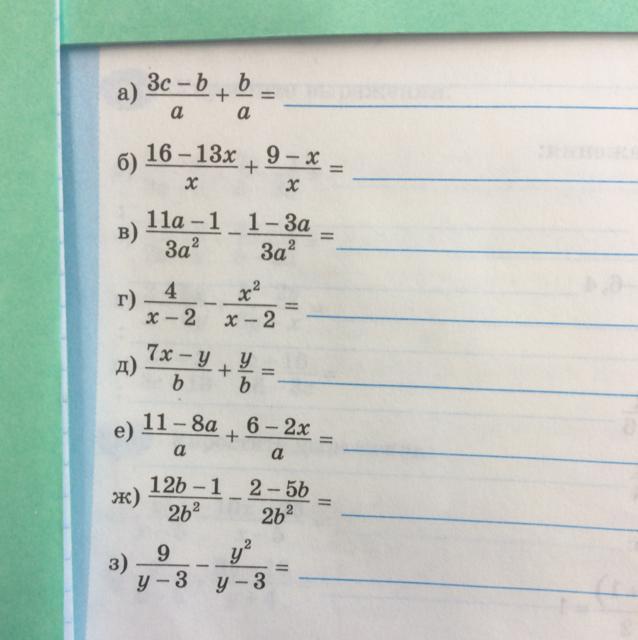 а) (3c − b)/a + b/a =
б) (16 − 13x)/x + (9 − x)/x =
в) (11a − 1)/(3a²) − (1 − 3a)/(3a²) =
г) 4/(x − 2) − x²/(x − 2) =
д) (7x − y)/b + y/b =
е) (11 − 8a)/a + (6 − 2x)/a =
ж) (12b − 1)/(2b²) − (2 − 5b)/(2b²) =
з) 9/(y − 3) − y²/(y − 3) =